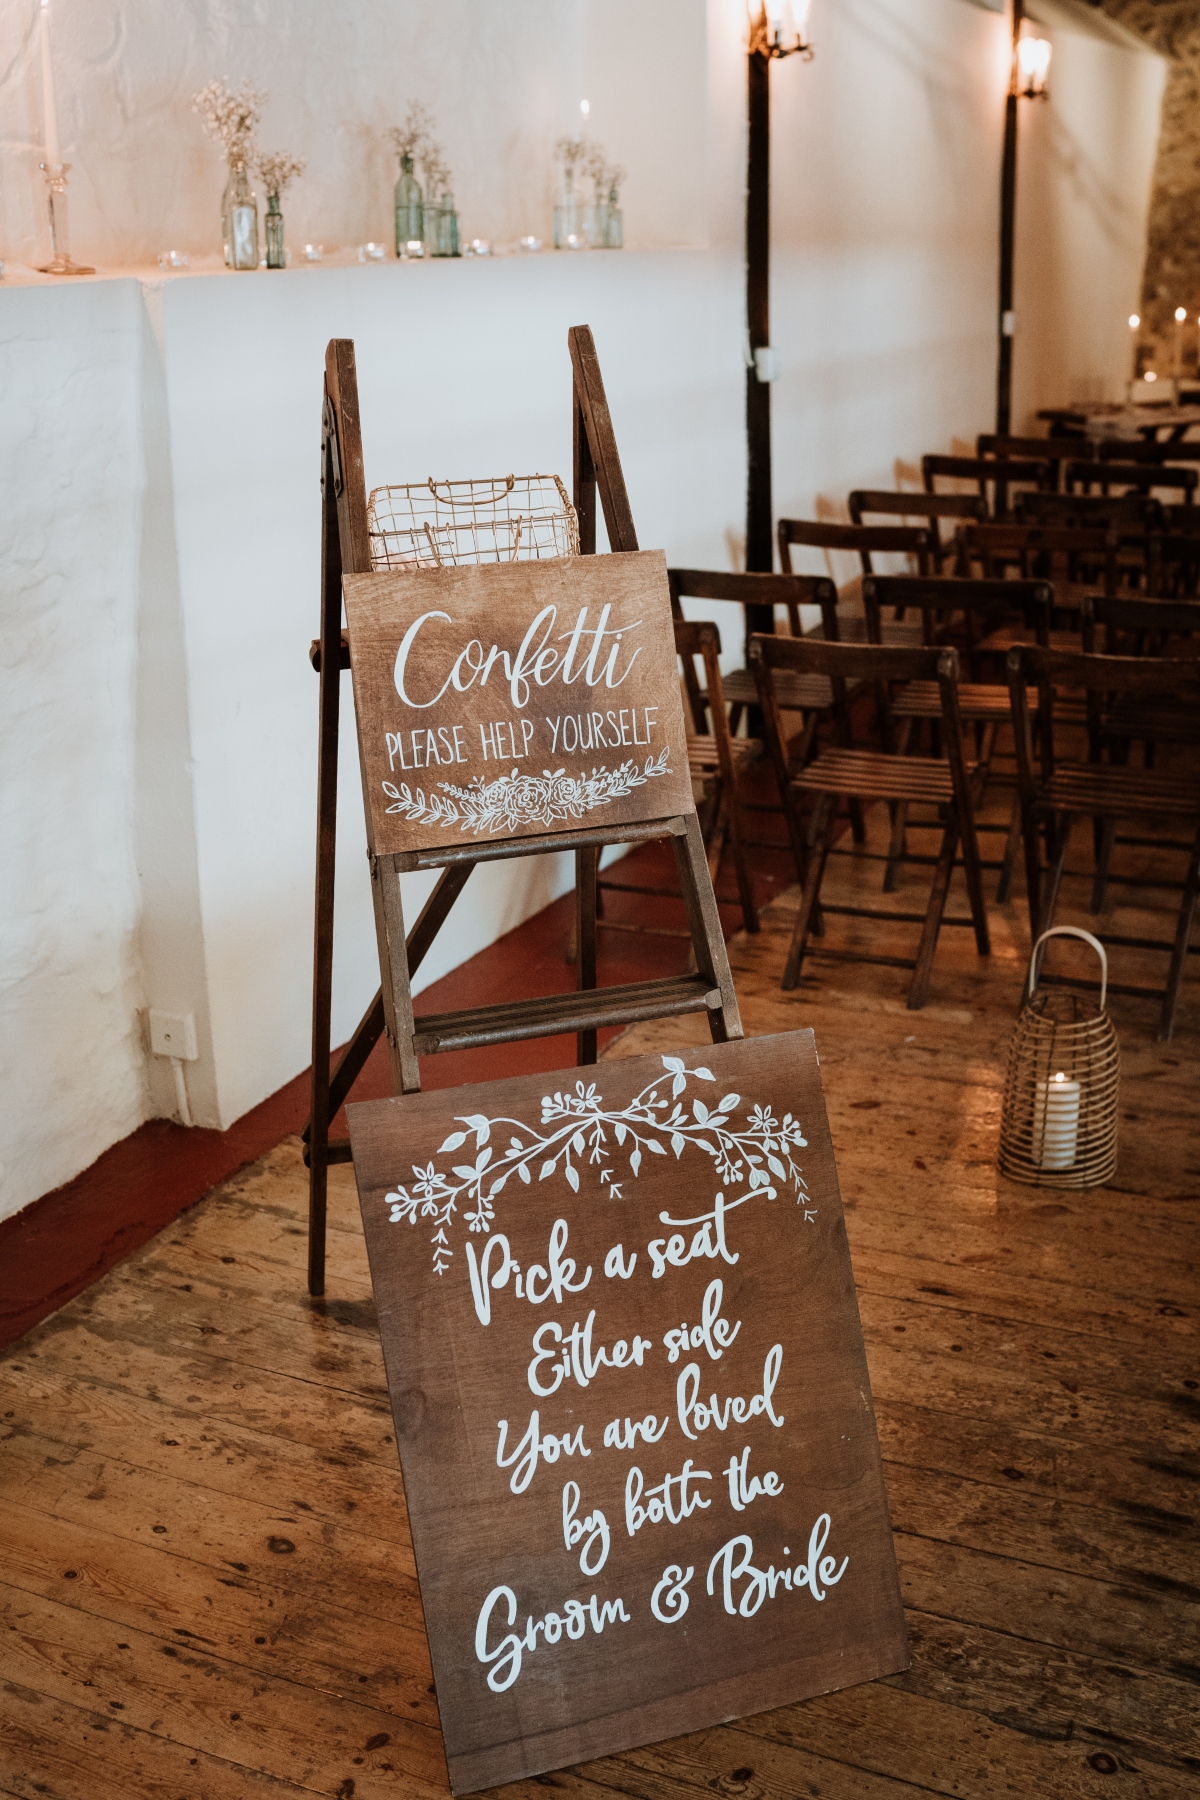 Confetti
PLEASE HELP YOURSELF
Pick a seat
Either side
You are loved
by both the
Groom & Bride